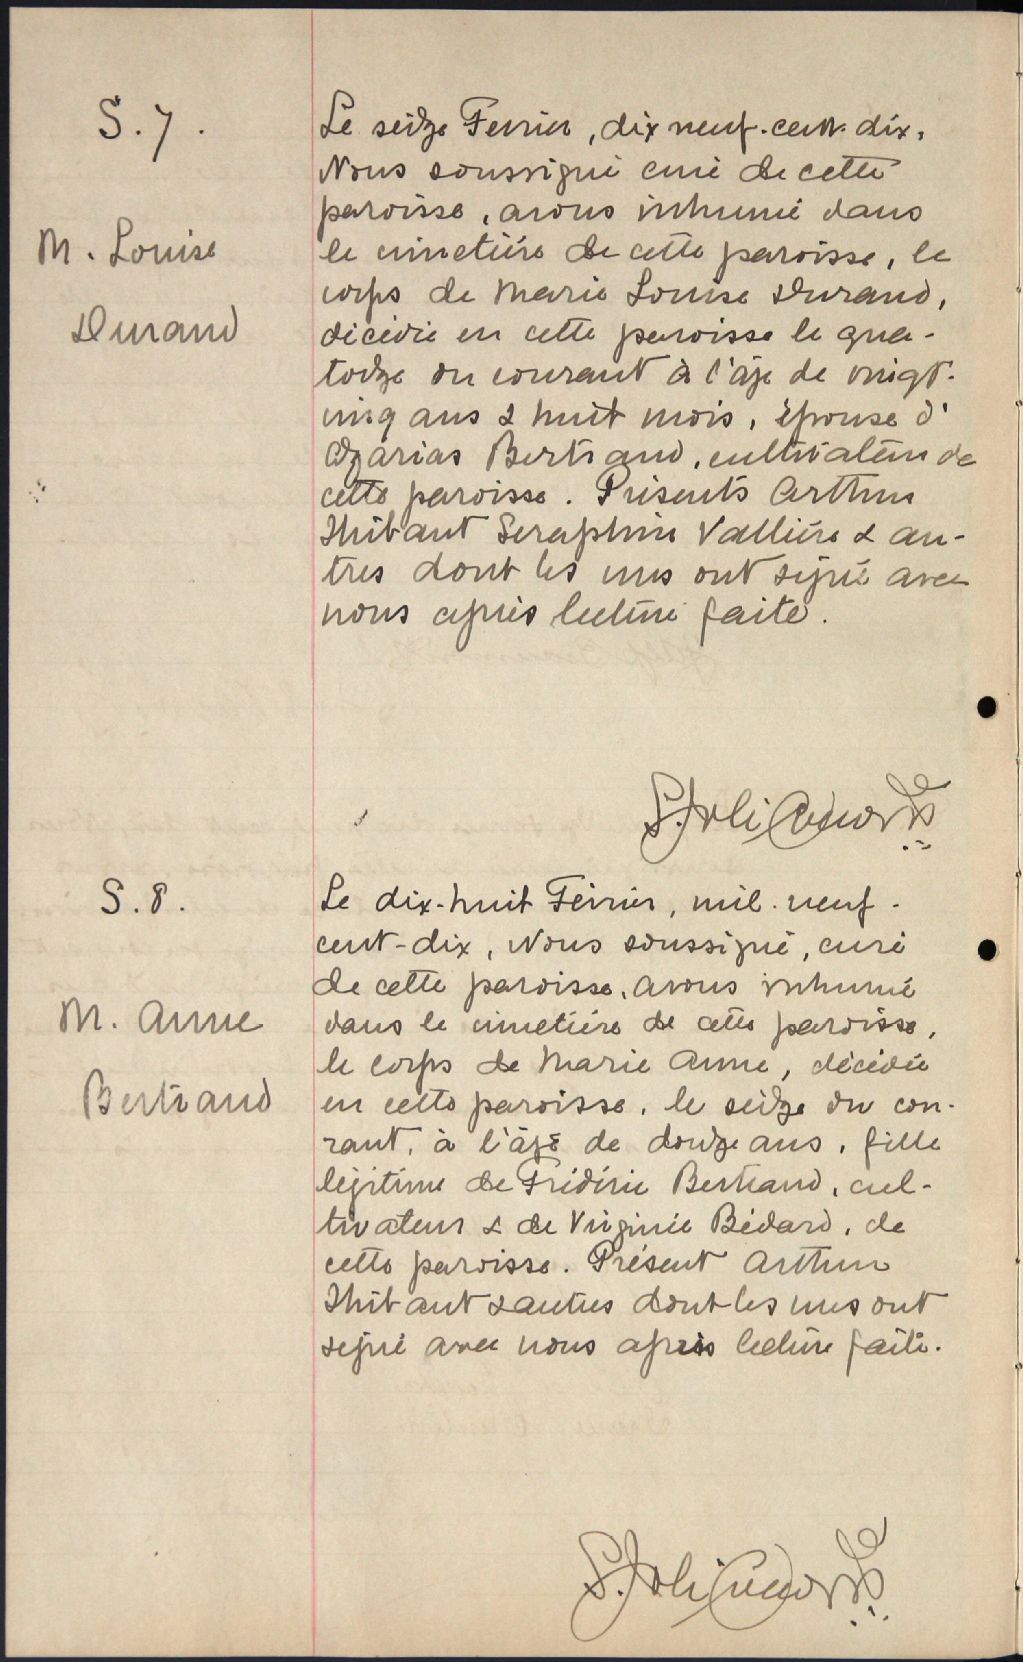 S. 7.
M. Louise
Durand
Le seize Fevrier, dix neuf-cent-dix,
Nous soussigné curé de cette
paroisse, avons inhumé dans
le cimetière de cette paroisse, le
corps de Marie Louise Durand,
décédée en cette paroisse le qua-
torze du courant à l'âge de vingt-
cinq ans & huit mois, épouse d'
Azarias Bertrand, cultivateur de
cette paroisse. Présents Arthur
Thibaut Seraphin Vallière & au-
tres dont les uns ont signé avec
nous après lecture faite.
S. Joli
S. 8.
M. Anne
Bertrand
Le dix-huit Février, mil-neuf-
cent-dix, Nous soussigné, curé
de cette paroisse, avons inhumé
dans le cimetière de cette paroisse,
le corps de Marie Anne, décédée
en cette paroisse, le seize du cou-
rant, à l'âge de douze ans, fille
légitime de Frédéric Bertrand, cul-
tivateur & de Virginie Bédard, de
cette paroisse. Présent Arthur
Thibaut & autres dont les uns ont
signé avec nous après lecture faite.
S. Joli